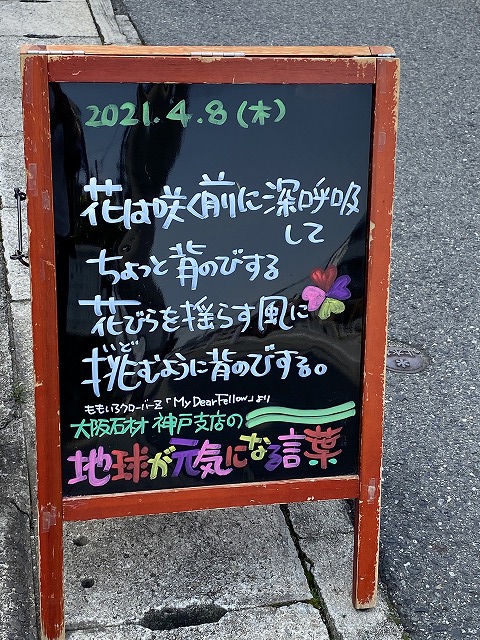 2021.4.8(木)
花は咲く前に深呼吸
して
ちょっと背のびする
花びらを揺らす風に
いど
挑むように背のびする。
ももいろクローバーZ「My Dear Fellow」より
大阪石材 神戸支店の
地球が元気になる言葉